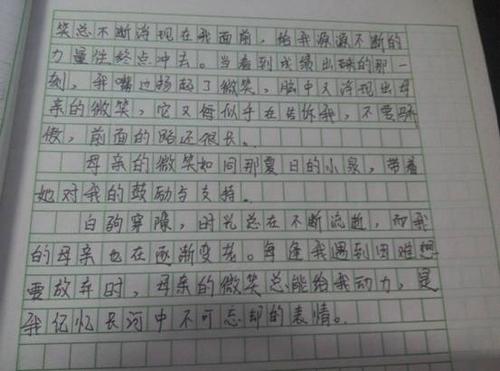 笑总不断浮现在我面前，给我源源不断的
力量往终点冲去。当看到成绩出来的那一
刻，我嘴边扬起了微笑，脑中又浮现出母
亲的微笑，它又每似乎在告诉我，不要骄
傲，前面的路还很长。
母亲的微笑如同那夏日的小泉，带着
她对我的鼓励与支持。
白驹穿隙，时光总在不断流逝，而我
的母亲也在逐渐变老。每逢我遇到困难想
要放弃时，母亲的微笑总能给我动力，是
我记忆长河中不可忘却的表情。